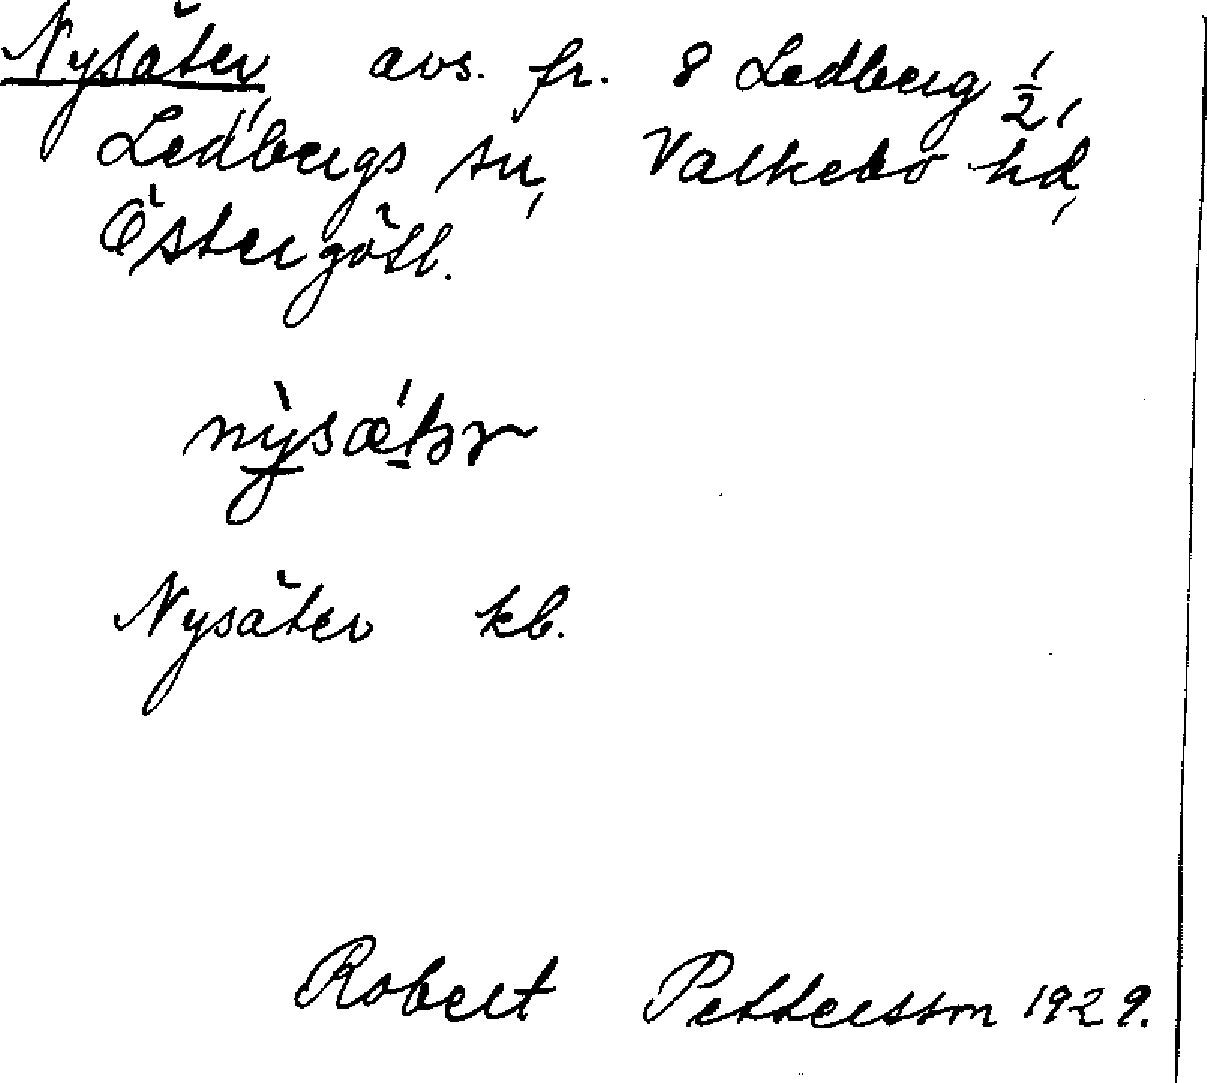 Nysäter avs. fr. 8 Ledberg 1/2,
Ledbergs sn, Valkebo hd,
Östergötl.
nỳsǽtər
Nysäter kb.
Robert Pettersson 1929.